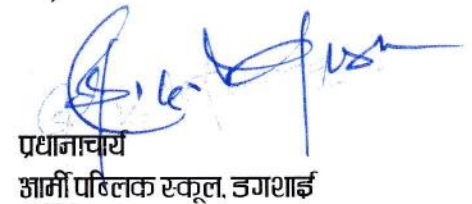 प्रधानाचार्य
आर्मी पब्लिक स्कूल, डगशाई